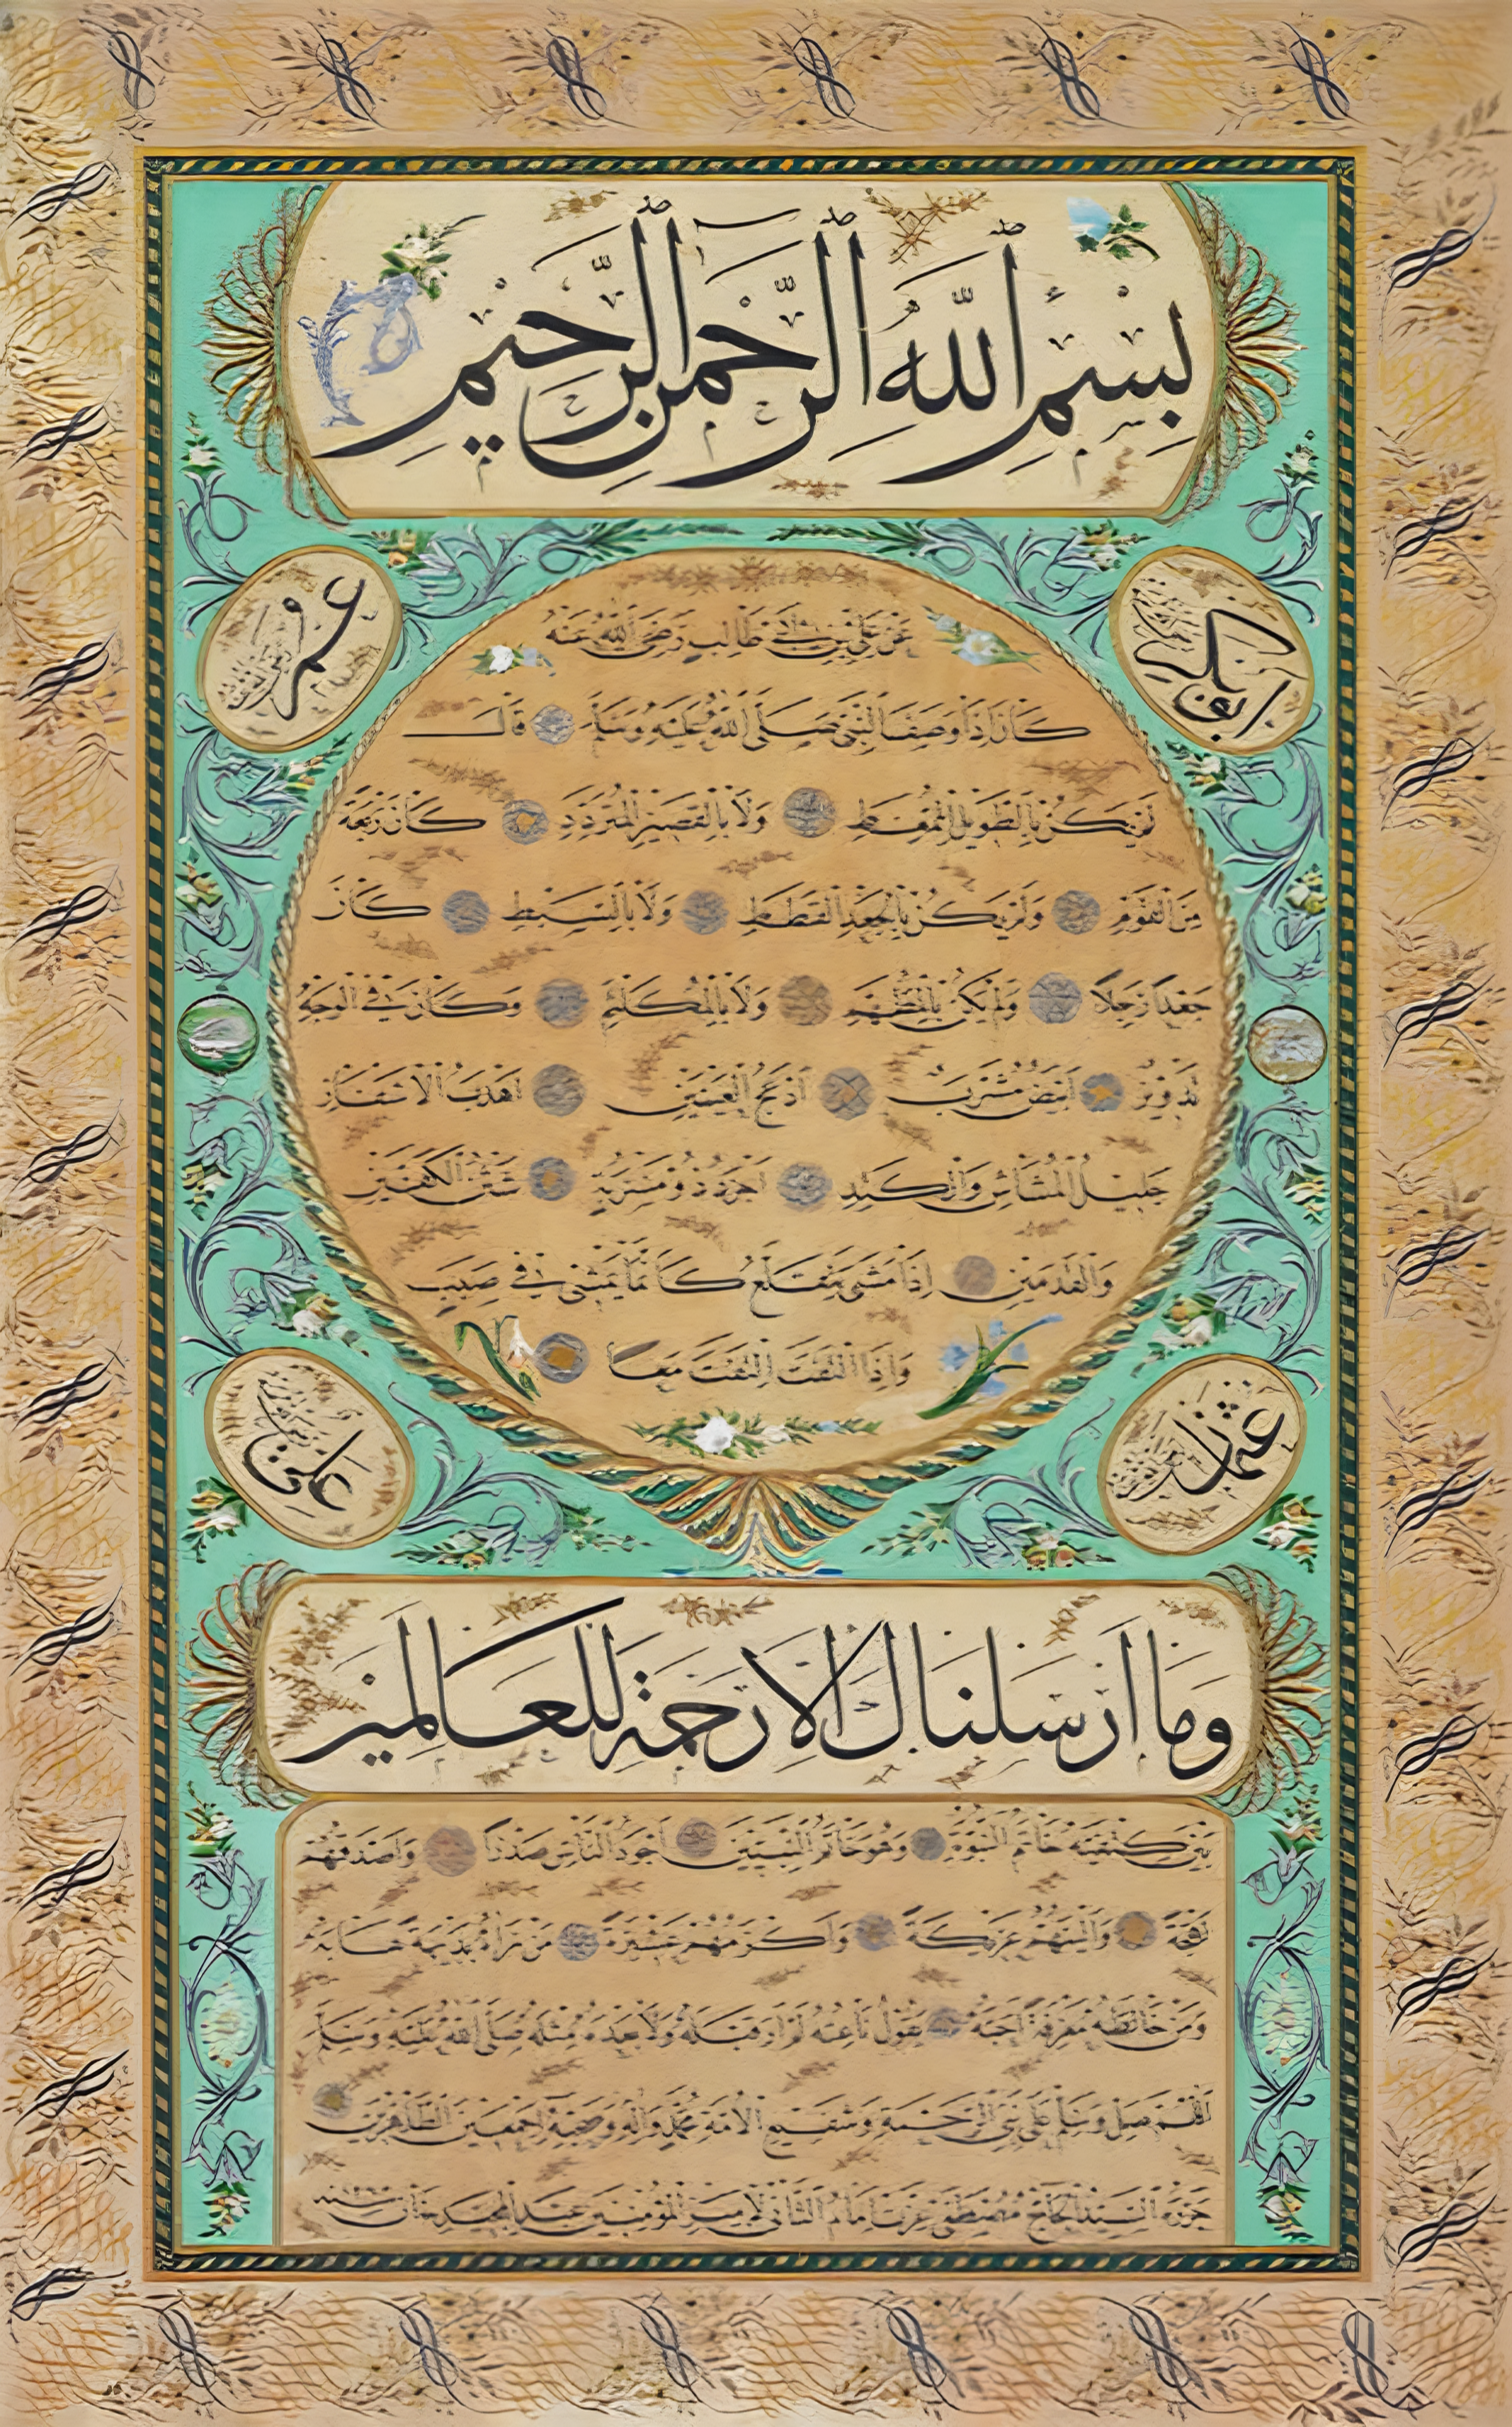 بسم الله الرحمن الرحيم
ابو بكر
عمر
عن علي بن ابي طالب رضي الله عنه
كان اذا وصف النبي صلى الله عليه وسلم قال
لم يكن بالطويل الممغط ولا بالقصير المتردد كان ربعة
من القوم ولم يكن بالجعد القطط ولا بالسبط كان
جعدا رجلا ولم يكن بالمطهم ولا بالمكلثم وكان في الوجه
تدوير ابيض مشرب ادعج العينين اهدب الاشفار
جليل المشاش والكتد اجرد ذو مسربة شثن الكفين
والقدمين اذا مشى يتقلع كانما يمشي في صبب
واذا التفت التفت معا
عثمان
علي
وما ارسلناك الا رحمة للعالمين
بين كتفيه خاتم النبوة وهو خاتم النبيين اجود الناس صدرا واصدقهم
لهجة والينهم عريكة واكرمهم عشيرة من راه بديهة هابه
ومن خالطه معرفة احبه يقول ناعته لم ار قبله ولا بعده مثله صلى الله عليه وسلم
اللهم صل وسلم على نبي الرحمة وشفيع الامة محمد واله وصحبه اجمعين الطاهرين
حرره السيد الحاج مصطفى عزت امام الثاني لامير المؤمنين عبد المجيد خان سنة